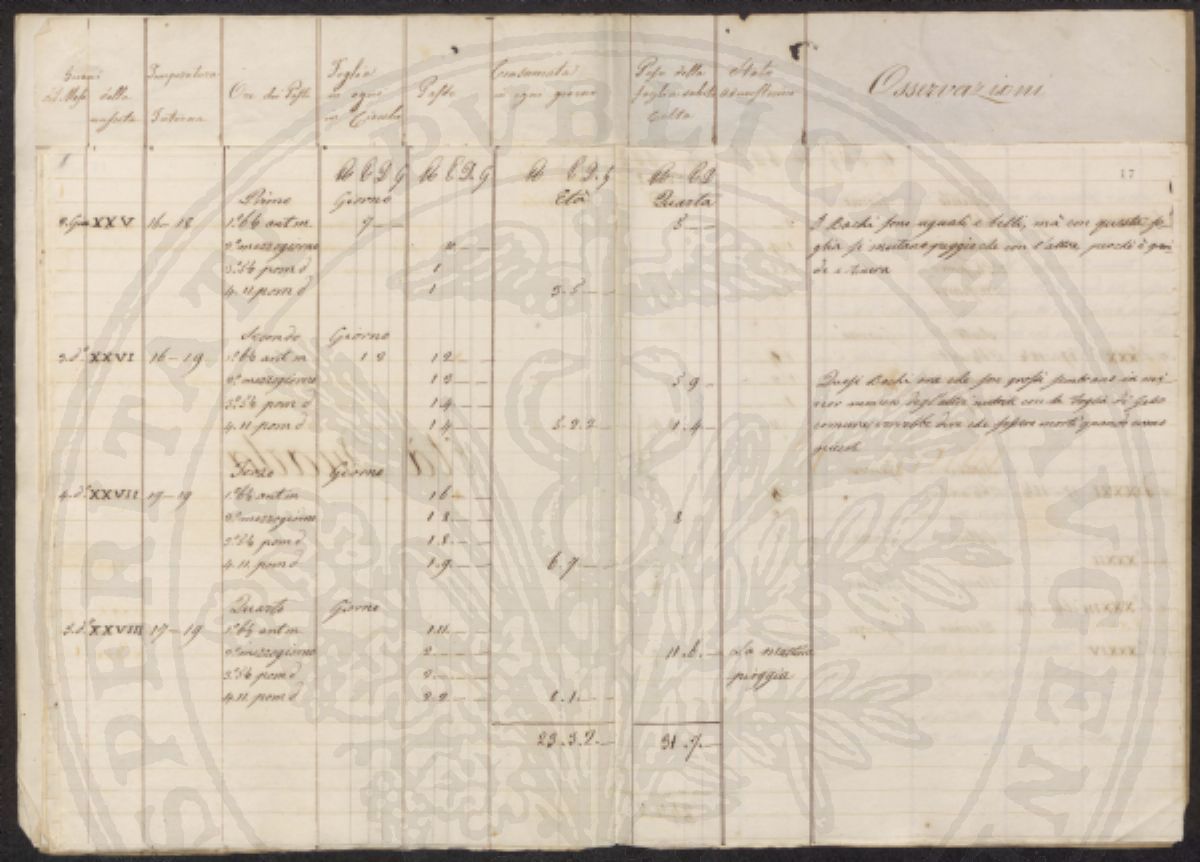 Giorni Temperatura Foglia Consumata Peso della Stato
del Mese della Ore dei Pasti in ogni Pasto in ogni giorno foglia subito Osservazioni
nascita Interna in Circolo Colta
17
℔ E D G ℔ E D G ℔ E D G ℔ E D
Primo Giorno Età Quarta
XXV 16-18 1.° 6½ ant.m. 7 5 I Bachi sono uguali e belli, mà con questa fo-
2.° mezzogiorno glia si nutano peggio che con l'altra, perchè è gran-
3.° 5½ pom.d. 1 de e dura
4. 11 pom.d. 1 5.5
Secondo Giorno
3.d.° XXVI 16-19 1.° 6½ ant.m. 1 2 1 2
2.° mezzogiorno 1 3 5 9 Questi Bachi ora che son grossi sembrano in mi-
3.° 5½ pom.d. 1 4 nor numero degl'altri nutriti con la foglia di Gelso
4. 11 pom.d. 1 4 5.2.2 1.4 comune, vorrebbe dire che fossero morti quando erano
piccoli
Terzo Giorno
4.d.° XXVII 19-19 1.° 6½ ant.m. 1 6
2.° mezzogiorno 1 8 8
3.° 5½ pom.d. 1.8
4. 11. pom.d. 1.9 6.7
Quarto Giorno
5.d.° XXVIII 17-19 1.° 6½ ant.m. 1.11
2.° mezzogiorno 2 11.6 La mattina
3.° 5½ pom.d. 2 pioggia
4. 11. pom.d. 2.2 8.1
23.3.2 31.7